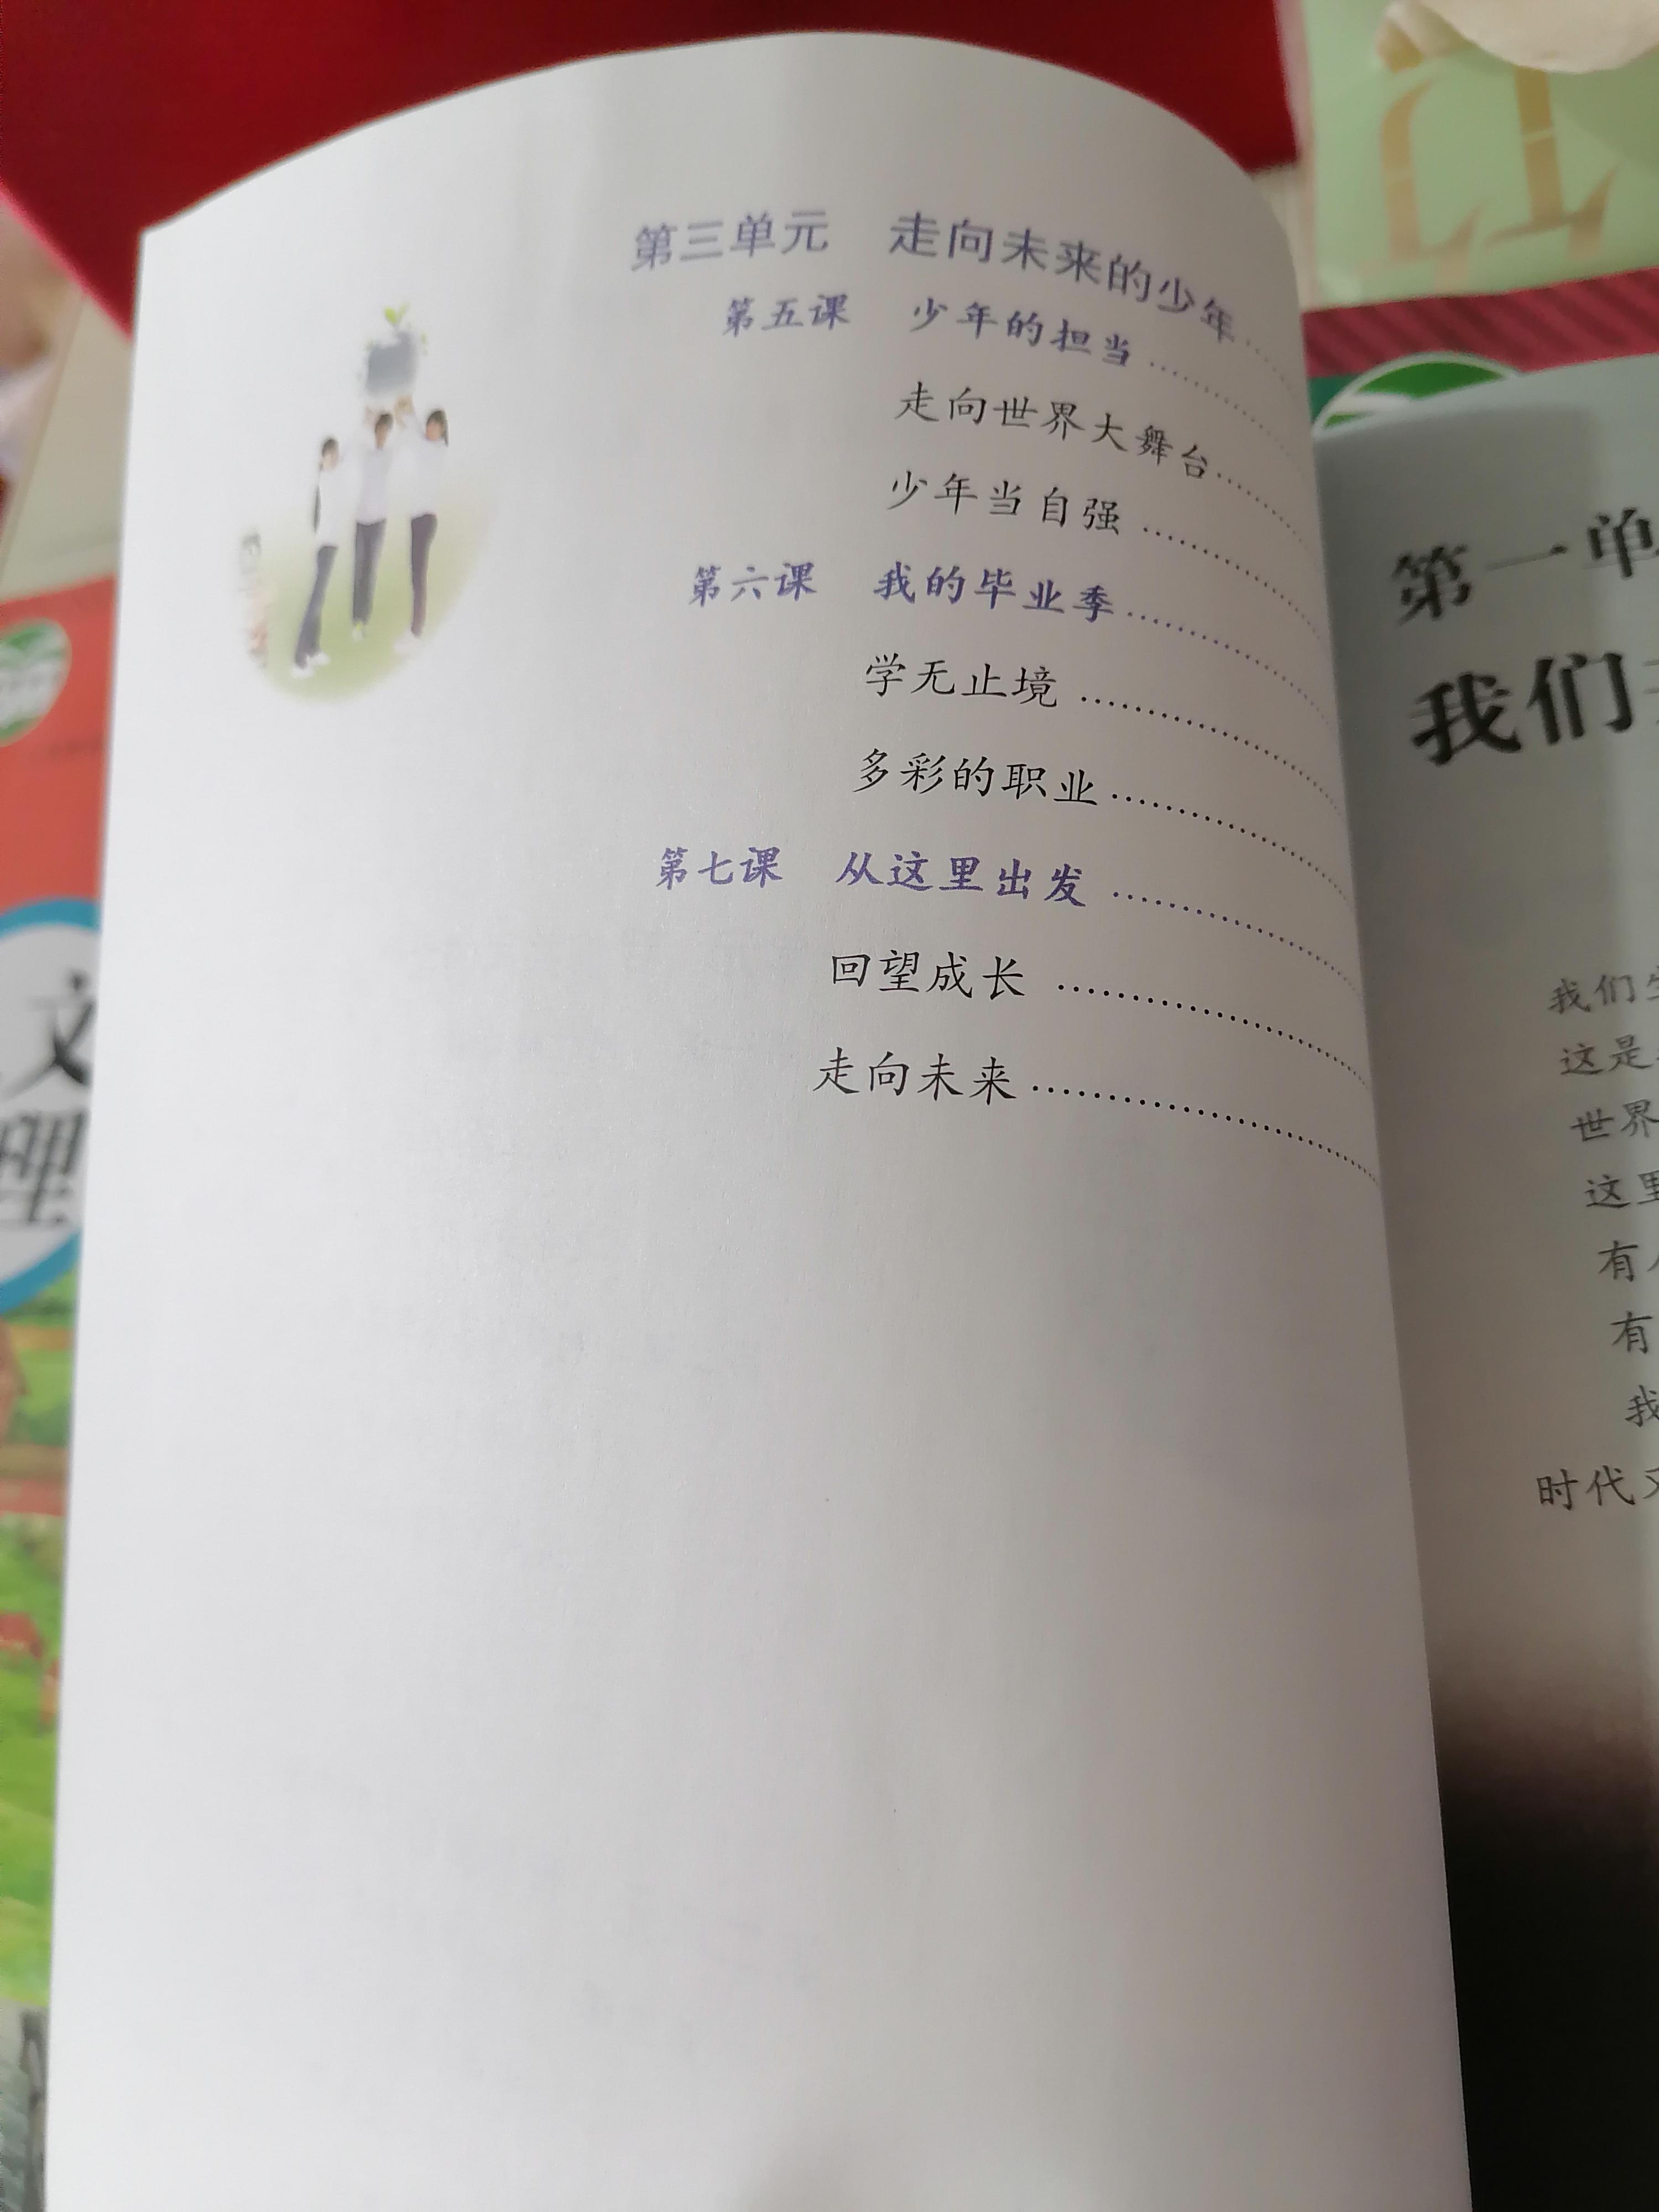 第三单元 走向未来的少年
第五课 少年的担当
走向世界大舞台
少年当自强
第六课 我的毕业季
学无止境
多彩的职业
第七课 从这里出发
回望成长
走向未来
第一单
我们
我们生
这是
世界
这里
有人
有
我
时代又
文